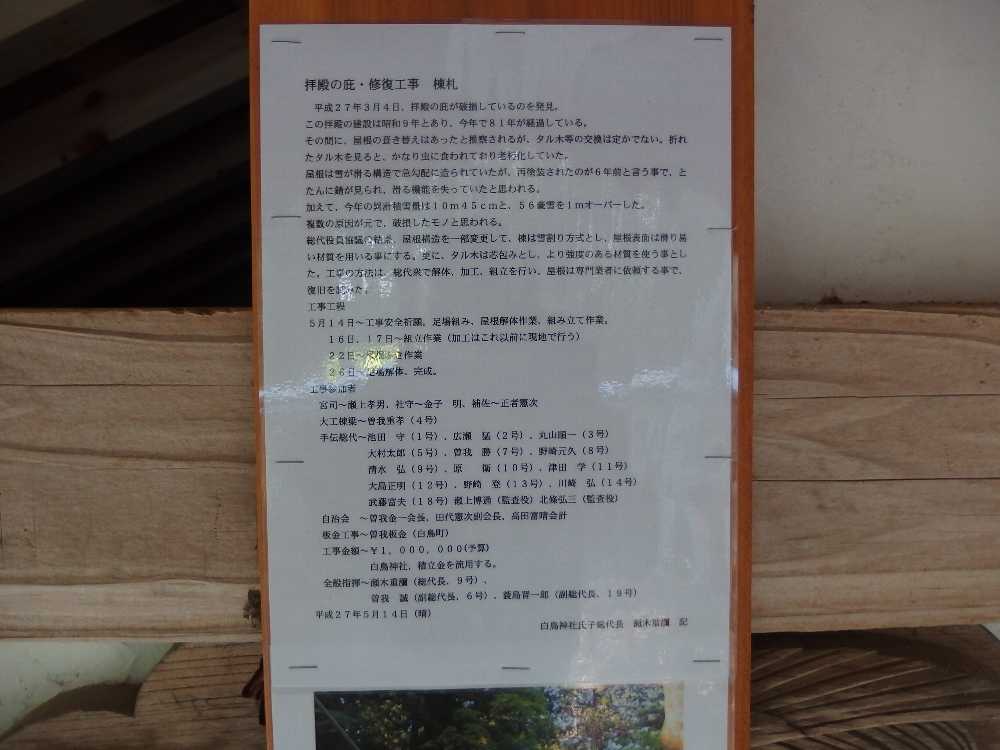 拝殿の庇・修復工事　棟札
平成２７年３月４日、拝殿の庇が破損しているのを発見。
この拝殿の建設は昭和９年とあり、今年で８１年が経過している。
その間に、屋根の葺き替えはあったと推察されるが、タル木等の交換は定かでない。折れ
たタル木を見ると、かなり虫に食われており老朽化していた。
屋根は雪が滑る構造で急勾配に造られていたが、再塗装されたのが６年前と言う事で、と
たんに錆が見られ、滑る機能を失っていたと思われる。
加えて、今年の累計積雪量は１０ｍ４５ｃｍと、５６豪雪を１ｍオーバーした。
複数の原因が元で、破損したモノと思われる。
総代役員協議の結果、屋根構造を一部変更して、棟は雪割り方式とし、屋根表面は滑り易
い材質を用いる事にする。更に、タル木は芯包みとし、より強度のある材質を使う事とし
た。工事の方法は、総代衆で解体、加工、組立を行い、屋根は専門業者に依頼する事で、
復旧を試みた。
工事工程
５月１４日～工事安全祈願。足場組み、屋根解体作業、組み立て作業。
１６日、１７日～組立作業（加工はこれ以前に現地で行う）
２２日～作業
２６日～足場解体、完成。
工事参加者
宮司～瀬上孝男、社守～金子　明、補佐～正者憲次
大工棟梁～曽我重孝（４号）
手伝総代～池田　守（１号）、広瀬　猛（２号）、丸山順一（３号）
大村太郎（５号）、曽我　勝（７号）、野崎元久（８号）
清水　弘（９号）、原　　衛（１０号）、津田　学（１１号）
大島正明（１２号）、野崎　登（１３号）、川崎　弘（１４号）
武藤富夫（１８号）瀬上博通（監査役）北條弘三（監査役）
自治会　～曽我金一会長、田代憲次副会長、高田富晴会計
板金工事～曽我板金（白鳥町）
工事金額～￥１，０００，０００(予算)
白鳥神社、積立金を流用する。
全般指揮～瀬木重彌（総代長、９号）、
曽我　誠（副総代長、６号）、籏島晋一郎（副総代長、１９号）
平成２７年５月１４日（晴）
白鳥神社氏子総代長　瀬木重彌　記